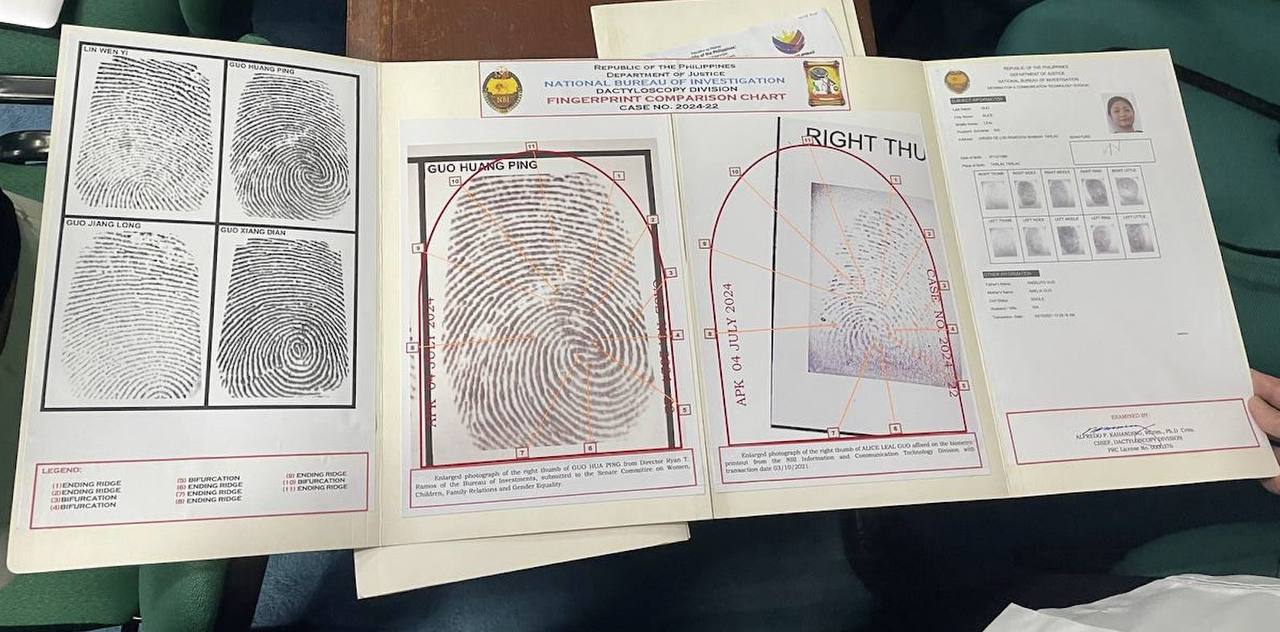 LIN WEN YI
GUO HUANG PING
GUO JIANG LONG
GUO XIANG DIAN
LEGEND:
(1)ENDING RIDGE
(2)ENDING RIDGE
(3)BIFURCATION
(4)BIFURCATION
(5) BIFURCATION
(6) ENDING RIDGE
(7) ENDING RIDGE
(8) ENDING RIDGE
(9) ENDING RIDGE
(10) BIFURCATION
(11) ENDING RIDGE
REPUBLIC OF THE PHILIPPINES
DEPARTMENT OF JUSTICE
NATIONAL BUREAU OF INVESTIGATION
DACTYLOSCOPY DIVISION
FINGERPRINT COMPARISON CHART
CASE NO. 2024-22
NBI
GUO HUANG PING
11
10
1
2
9
3
4
8
5
7
6
APK 04 JULY 2024
Enlarged photograph of the right thumb of GUO HUA PING from Director Ryan T.
Ramos of the Bureau of Investments, submitted to the Senate Committee on Women,
Children, Family Relations and Gender Equality.
RIGHT THU
11
10
1
2
9
3
4
8
5
7
6
APK 04 JULY 2024
CASE NO. 2024 - 22
Enlarged photograph of the right thumb of ALICE LEAL GUO affixed on the biometric
printout from the NBI Information and Communication Technology Division with
transaction date 03/10/2021.
REPUBLIC OF THE PHILIPPINES
DEPARTMENT OF JUSTICE
NATIONAL BUREAU OF INVESTIGATION
INFORMATION & COMMUNICATION TECHNOLOGY DIVISION
SUBJECT INFORMATION
Last Name: GUO
ALICE
Middle Name: LEAL
Address:
Date of Birth:
Place of Birth: TARLAC, TARLAC
RIGHT THUMB
RIGHT INDEX
RIGHT MIDDLE
RIGHT RING
RIGHT LITTLE
LEFT THUMB
LEFT INDEX
LEFT MIDDLE
LEFT RING
LEFT LITTLE
OTHER INFORMATION
Father's Name: ANGELITO GUO
Mother's Name: AMELIA GUO
Civil Status: SINGLE
Transaction Date:
EXAMINED BY:
CHIEF, DACTYLOSCOPY DIVISION
PRC License No. 0000376